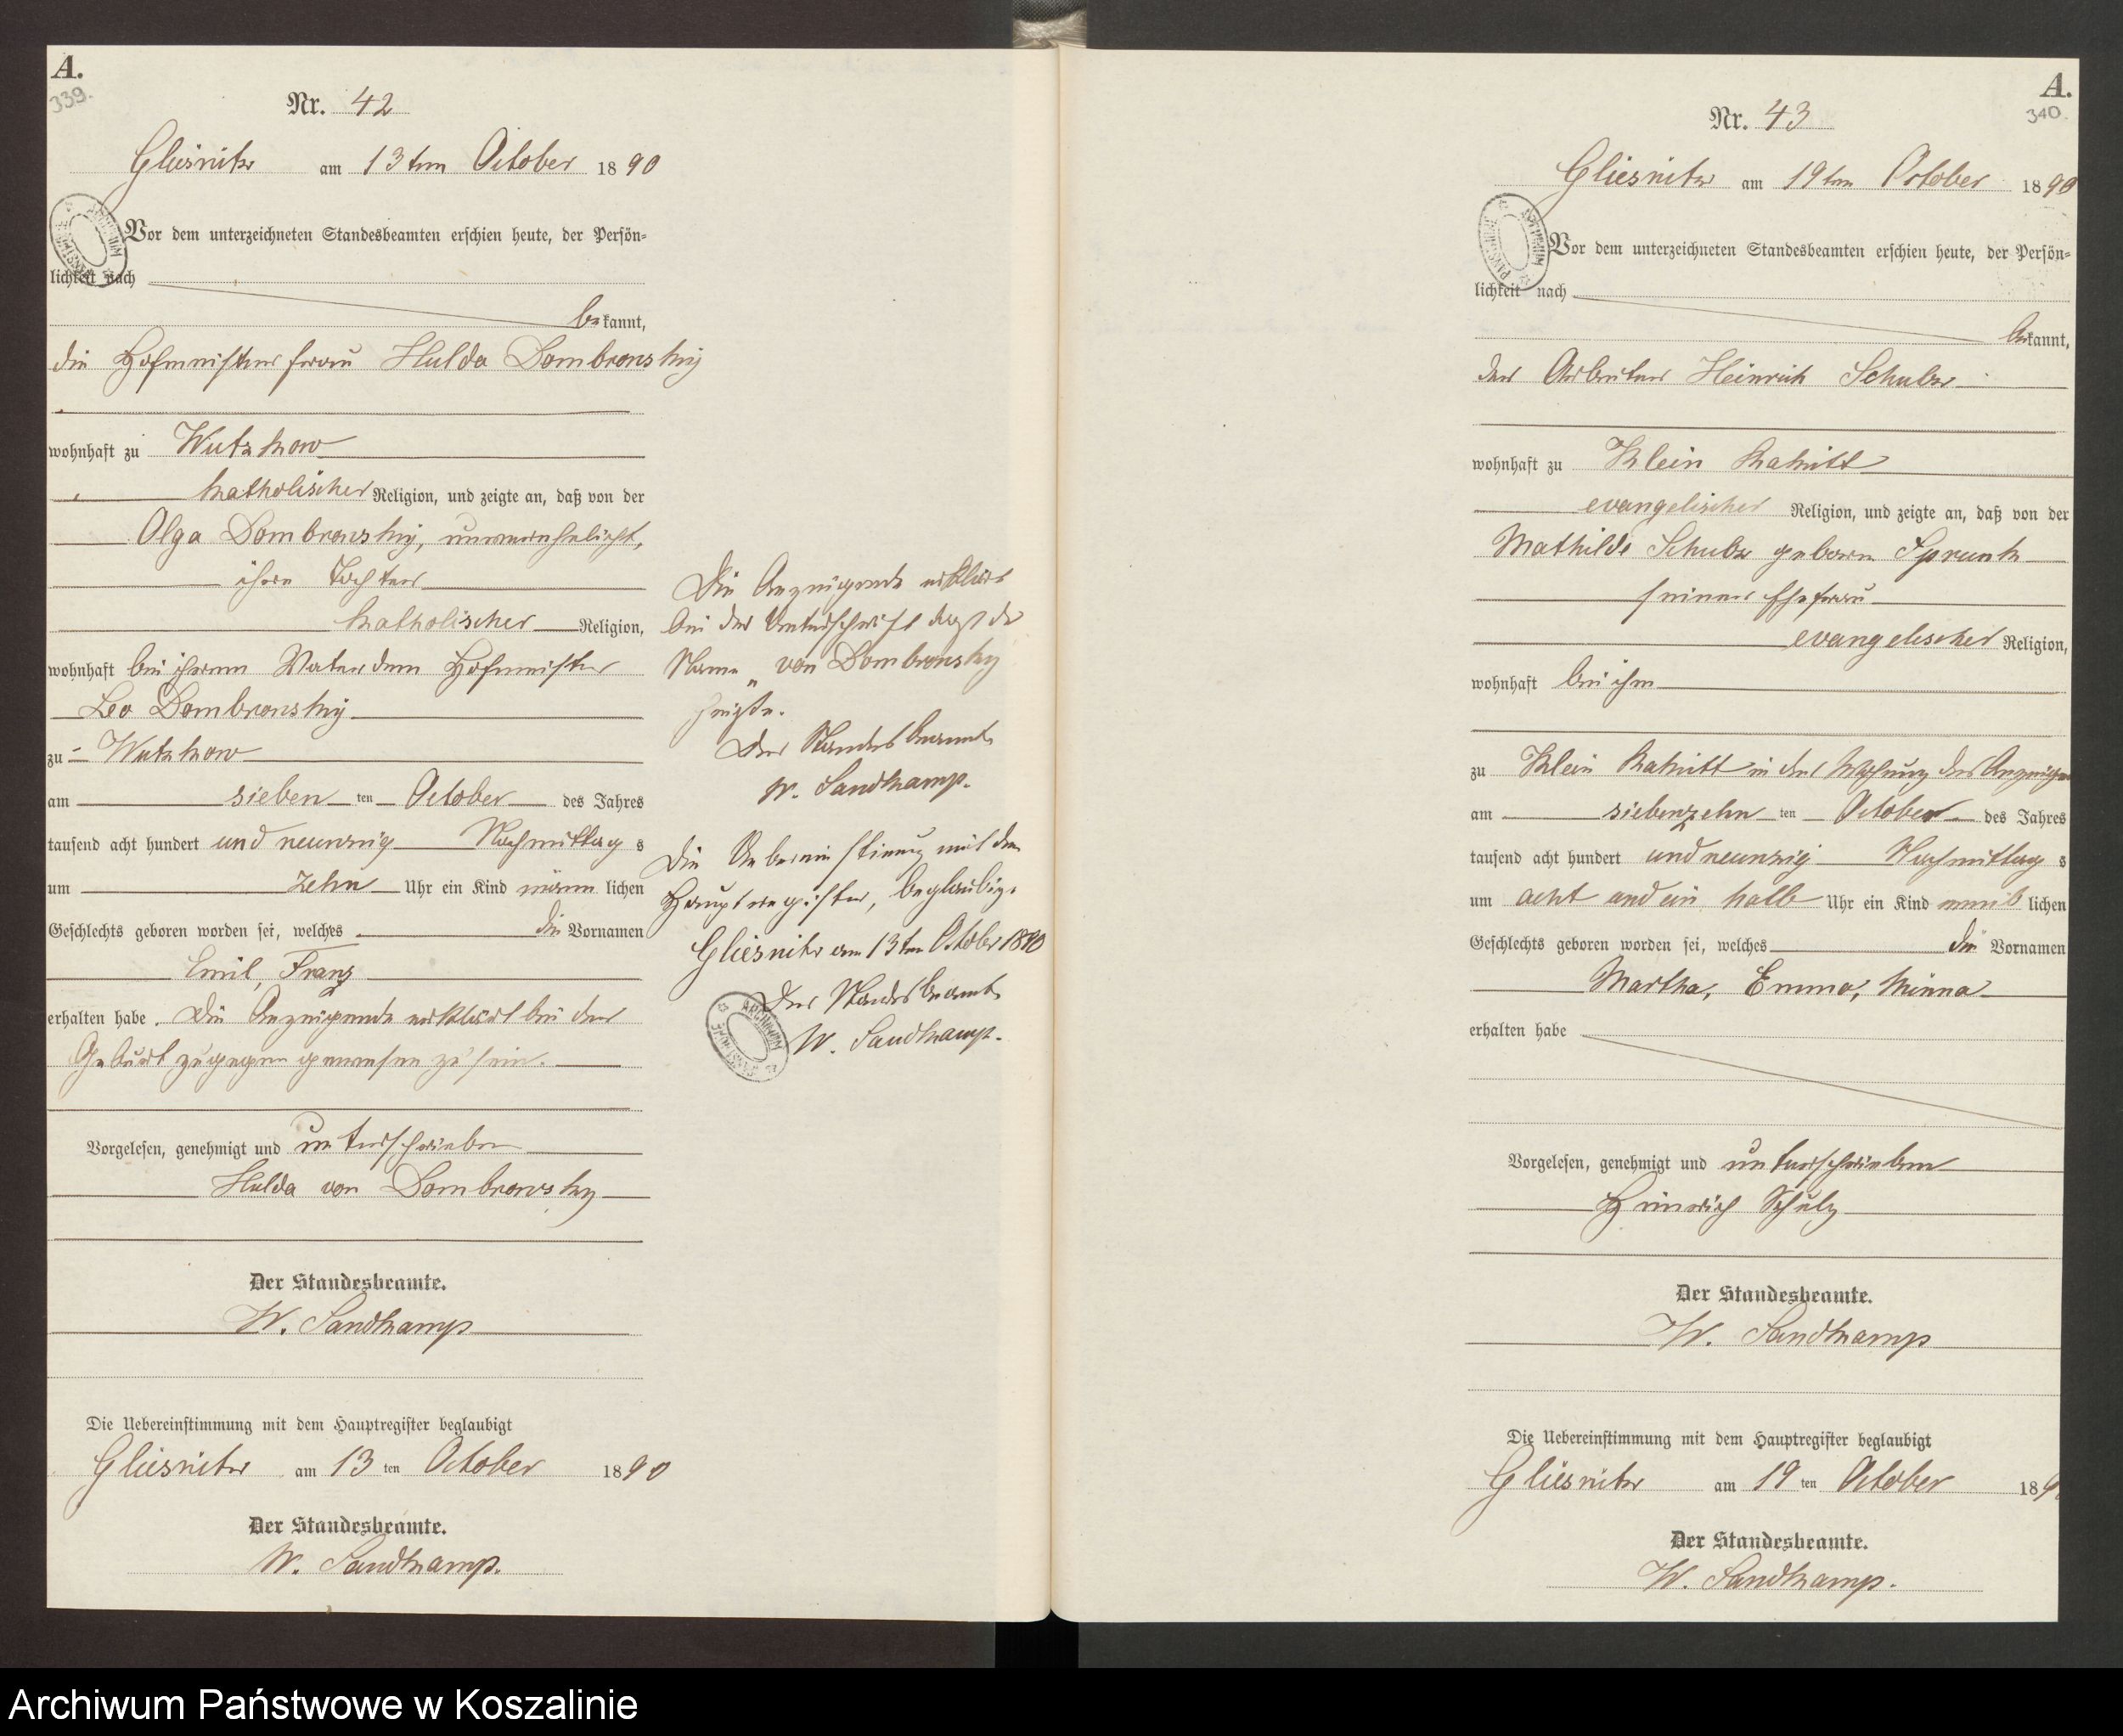 A.
339.
Nr. 42
Gliesnitz am 13ten October 1890
Vor dem unterzeichneten Standesbeamten erschien heute, der Persön-
lichkeit nach
bekannt,
die Hofmeisterfrau Hulda Dombronsky
wohnhaft zu Wutzkow
katholischer Religion, und zeigte an, daß von der
Olga Dombronsky, unverehelicht,
ihrer Tochter
katholischer Religion,
wohnhaft bei ihrem Vater dem Hofmeister
Leo Dombronsky
zu Wutzkow
am sieben ten October des Jahres
tausend acht hundert und neunzig Nachmittag s
um zehn Uhr ein Kind männ lichen
Geschlechts geboren worden sei, welches die Vornamen
Emil, Franz
erhalten habe. Die Anzeigende erklärt bei der
Geburt zugegen gewesen zu sein.
Vorgelesen, genehmigt und unterschrieben
Hulda von Dombrowsky
Der Standesbeamte.
W. Sandkamp
Die Uebereinstimmung mit dem Hauptregister beglaubigt
Gliesnitz am 13 ten October 1890
Der Standesbeamte.
W. Sandkamp.
Die Anzeigende erklärt
bei der Unterschrift daß der
Name "von Dombronsky
heißte.
Der Standesbeamte
W. Sandkamp.
Die Uebereinstimung mit dem
Hauptregister, beglaubigt
Gliesnitz am 13ten October 1890
Der Standesbeamte
W. Sandkamp.
A.
340.
Nr. 43
Gliesnitz am 19ten October 1890
Vor dem unterzeichneten Standesbeamten erschien heute, der Persön-
lichkeit nach
bekannt,
der Arbeiter Heinrich Schulz
wohnhaft zu Klein Rakitt
evangelischer Religion, und zeigte an, daß von der
Mathilde Schulz geborne Sprunk
seiner Ehefrau
evangelischer Religion,
wohnhaft bei ihm
zu Klein Rakitt in der Wohnung des Anzeigers
am siebenzehn ten October des Jahres
tausend acht hundert und neunzig Nachmittag s
um acht und ein halb Uhr ein Kind weib lichen
Geschlechts geboren worden sei, welches die Vornamen
Martha, Emma, Minna
erhalten habe
Vorgelesen, genehmigt und unterschrieben
Heinrich Schulz
Der Standesbeamte.
W. Sandkamp
Die Uebereinstimmung mit dem Hauptregister beglaubigt
Gliesnitz am 19 ten October 189
Der Standesbeamte.
W. Sandkamp.
Archiwum Państwowe w Koszalinie